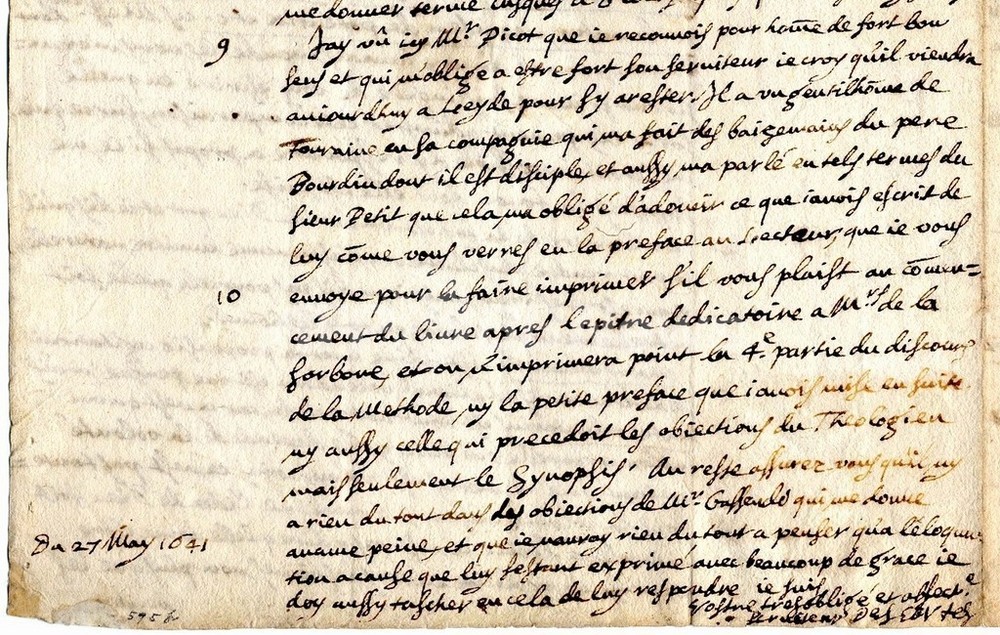 me donner terme jusques a
9 Jay vû icy Mr. Picot que ie reconnois pour home de fort bon
sens et qui m'oblige a estre fort son serviteur ie croy qu'il viendra
auiourdhuy a Leyde pour sy arester. Il a un gentilhome de
Touraine en sa compagnie qui ma fait des baizemains du pere
Bourdin dont il est disciple, et aussy ma parlé en tels termes du
sieur Petit que cela ma obligé d'adoucir ce que iavois escrit de
luy come vous verres en la preface au Lecteur, que ie vous
10 envoye pour la faire imprimer s'il vous plaist au comen=
cement du livre apres l'epitre dedicatoire a Mrs. de la
sorbone, et on n'imprimera point la 4e. partie du discours
de la Methode, ny la petite preface que iavois mise en suite,
ny aussy celle qui precedoit les obiections du Theologien
mais seulement le Synopsis. Au reste assurez vous qu'il ny
a rien du tout dans les obiections de Mr. Gassendo qui me donne
aucune peine, et que ie nauray rien du tout a penser qua l'eloqu
Du 27 May 1641
tion a cause que luy sestant exprimé avec beaucoup de grace ie
doy aussy tascher en cela de luy respondre ie suis
Vostre tresobligé et affecte.
serviteur Descartes
595 b